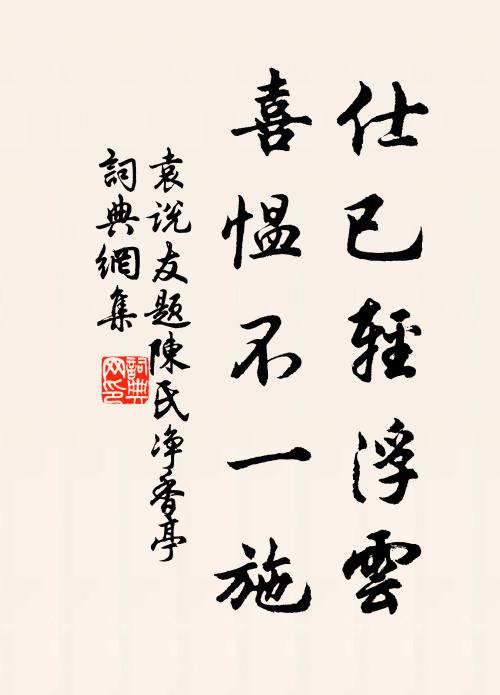 仕已輕浮雲
喜愠不一施
袁说友题陳氏净香亭
詞典網集
詞典网印